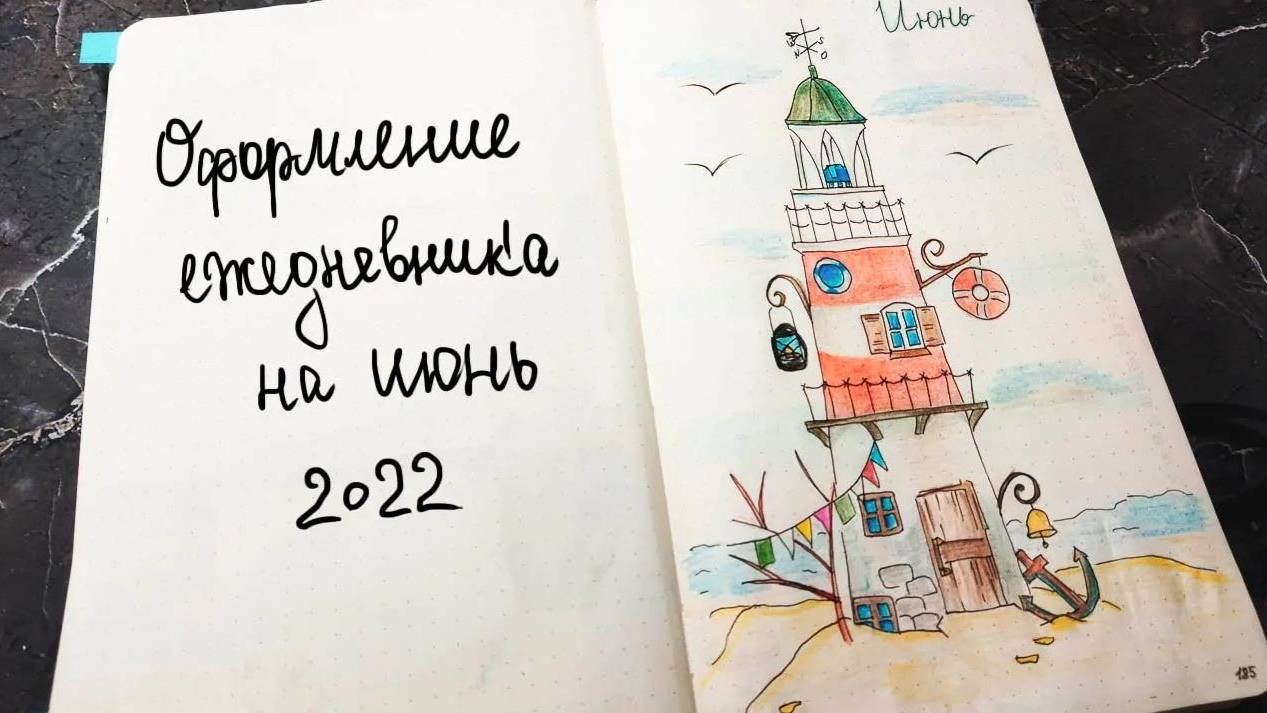 Оформление
ежедневника
на июнь
2022
Июнь
185